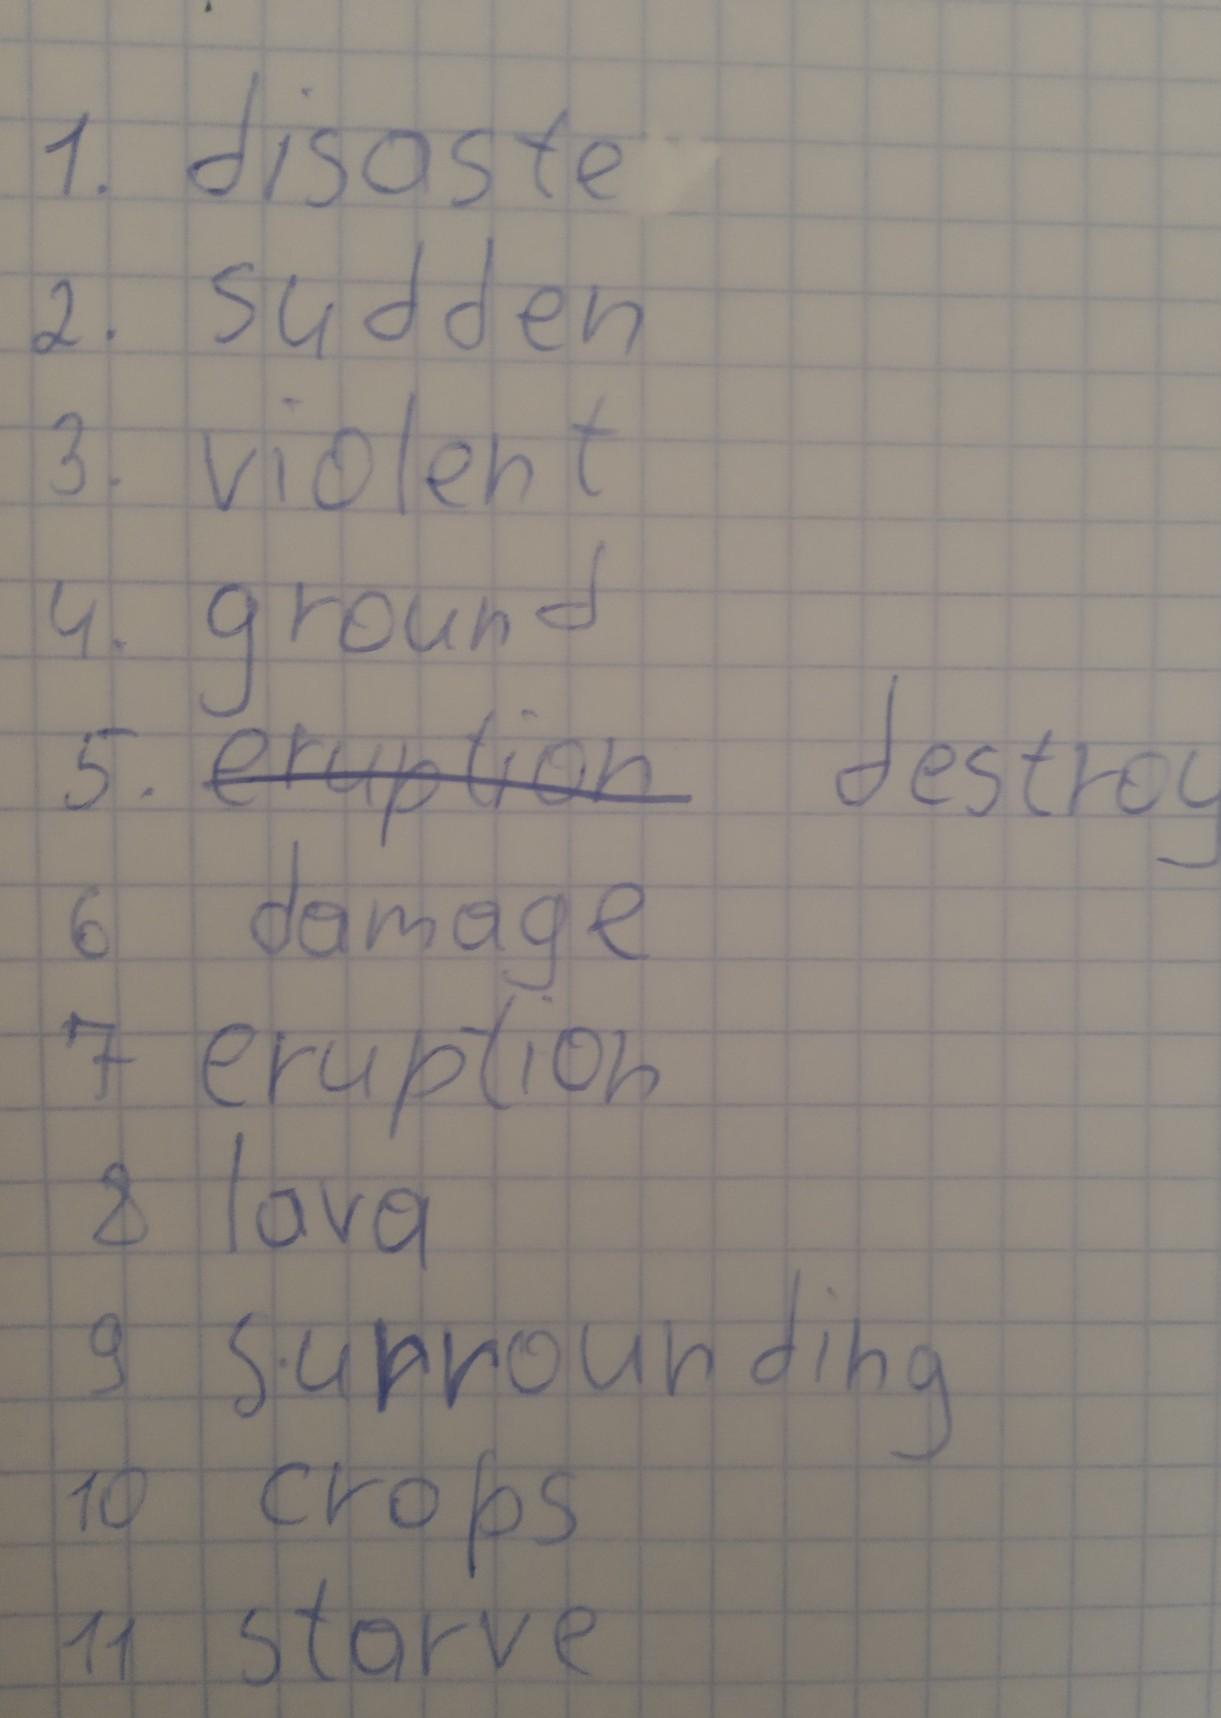 1. disaste
2. sudden
3. violent
4. ground
5. eruption destroy
6 damage
7 eruption
8 lava
9 surrounding
10 crops
11 starve